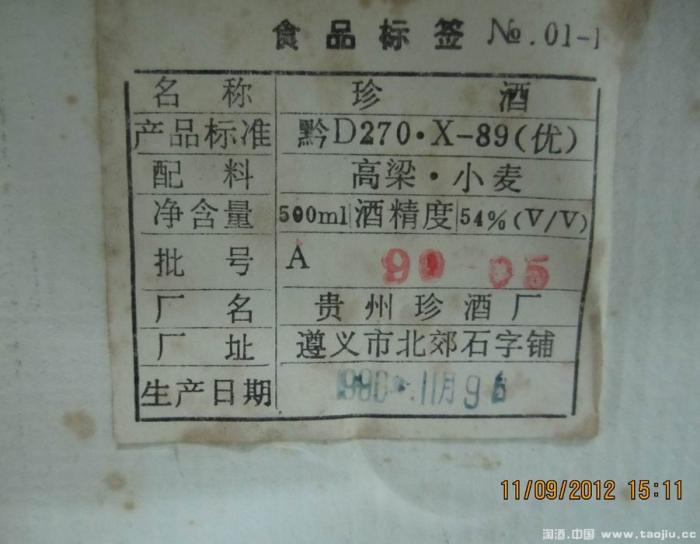 食品标签 №.01-1
名称 珍酒
产品标准 黔D270·X-89(优)
配料 高梁·小麦
净含量 500ml 酒精度 54%(V/V)
批号 A 90 05
厂名 贵州珍酒厂
厂址 遵义市北郊石字铺
生产日期 1990 11月9
11/09/2012 15:11
淘酒.中国 www.taojiu.cc